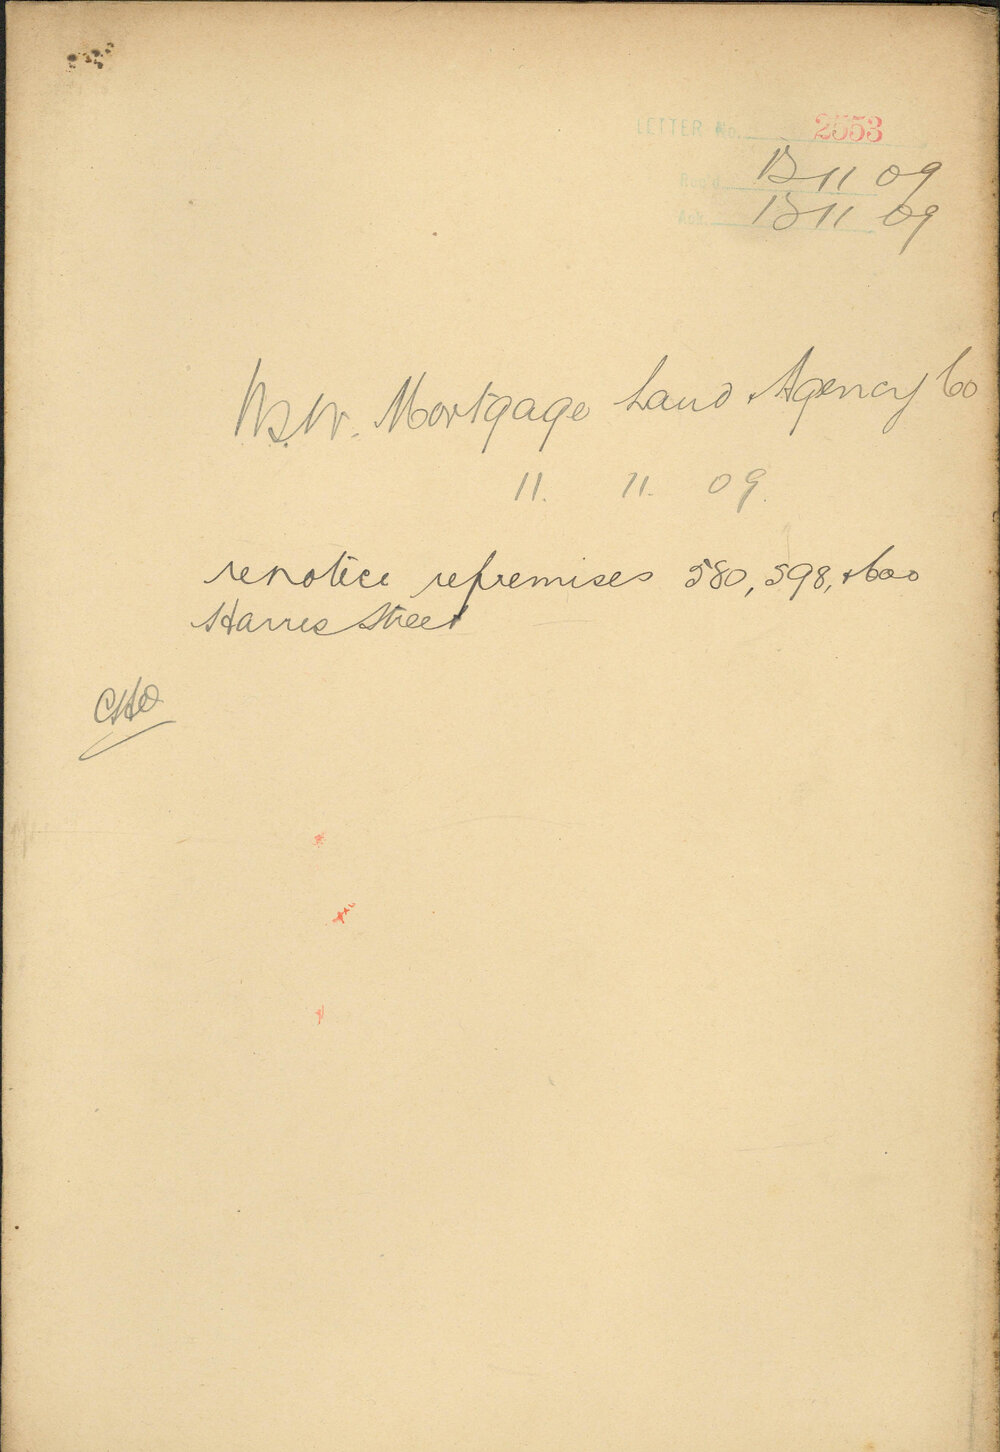 LETTER No. 2553
Rec'd 12 11 09
Ack. 12 11 09
N.S.W. Mortgage Land & Agency Co
11. 11. 09.
re notice re premises 580, 598, & 600
Harris Street